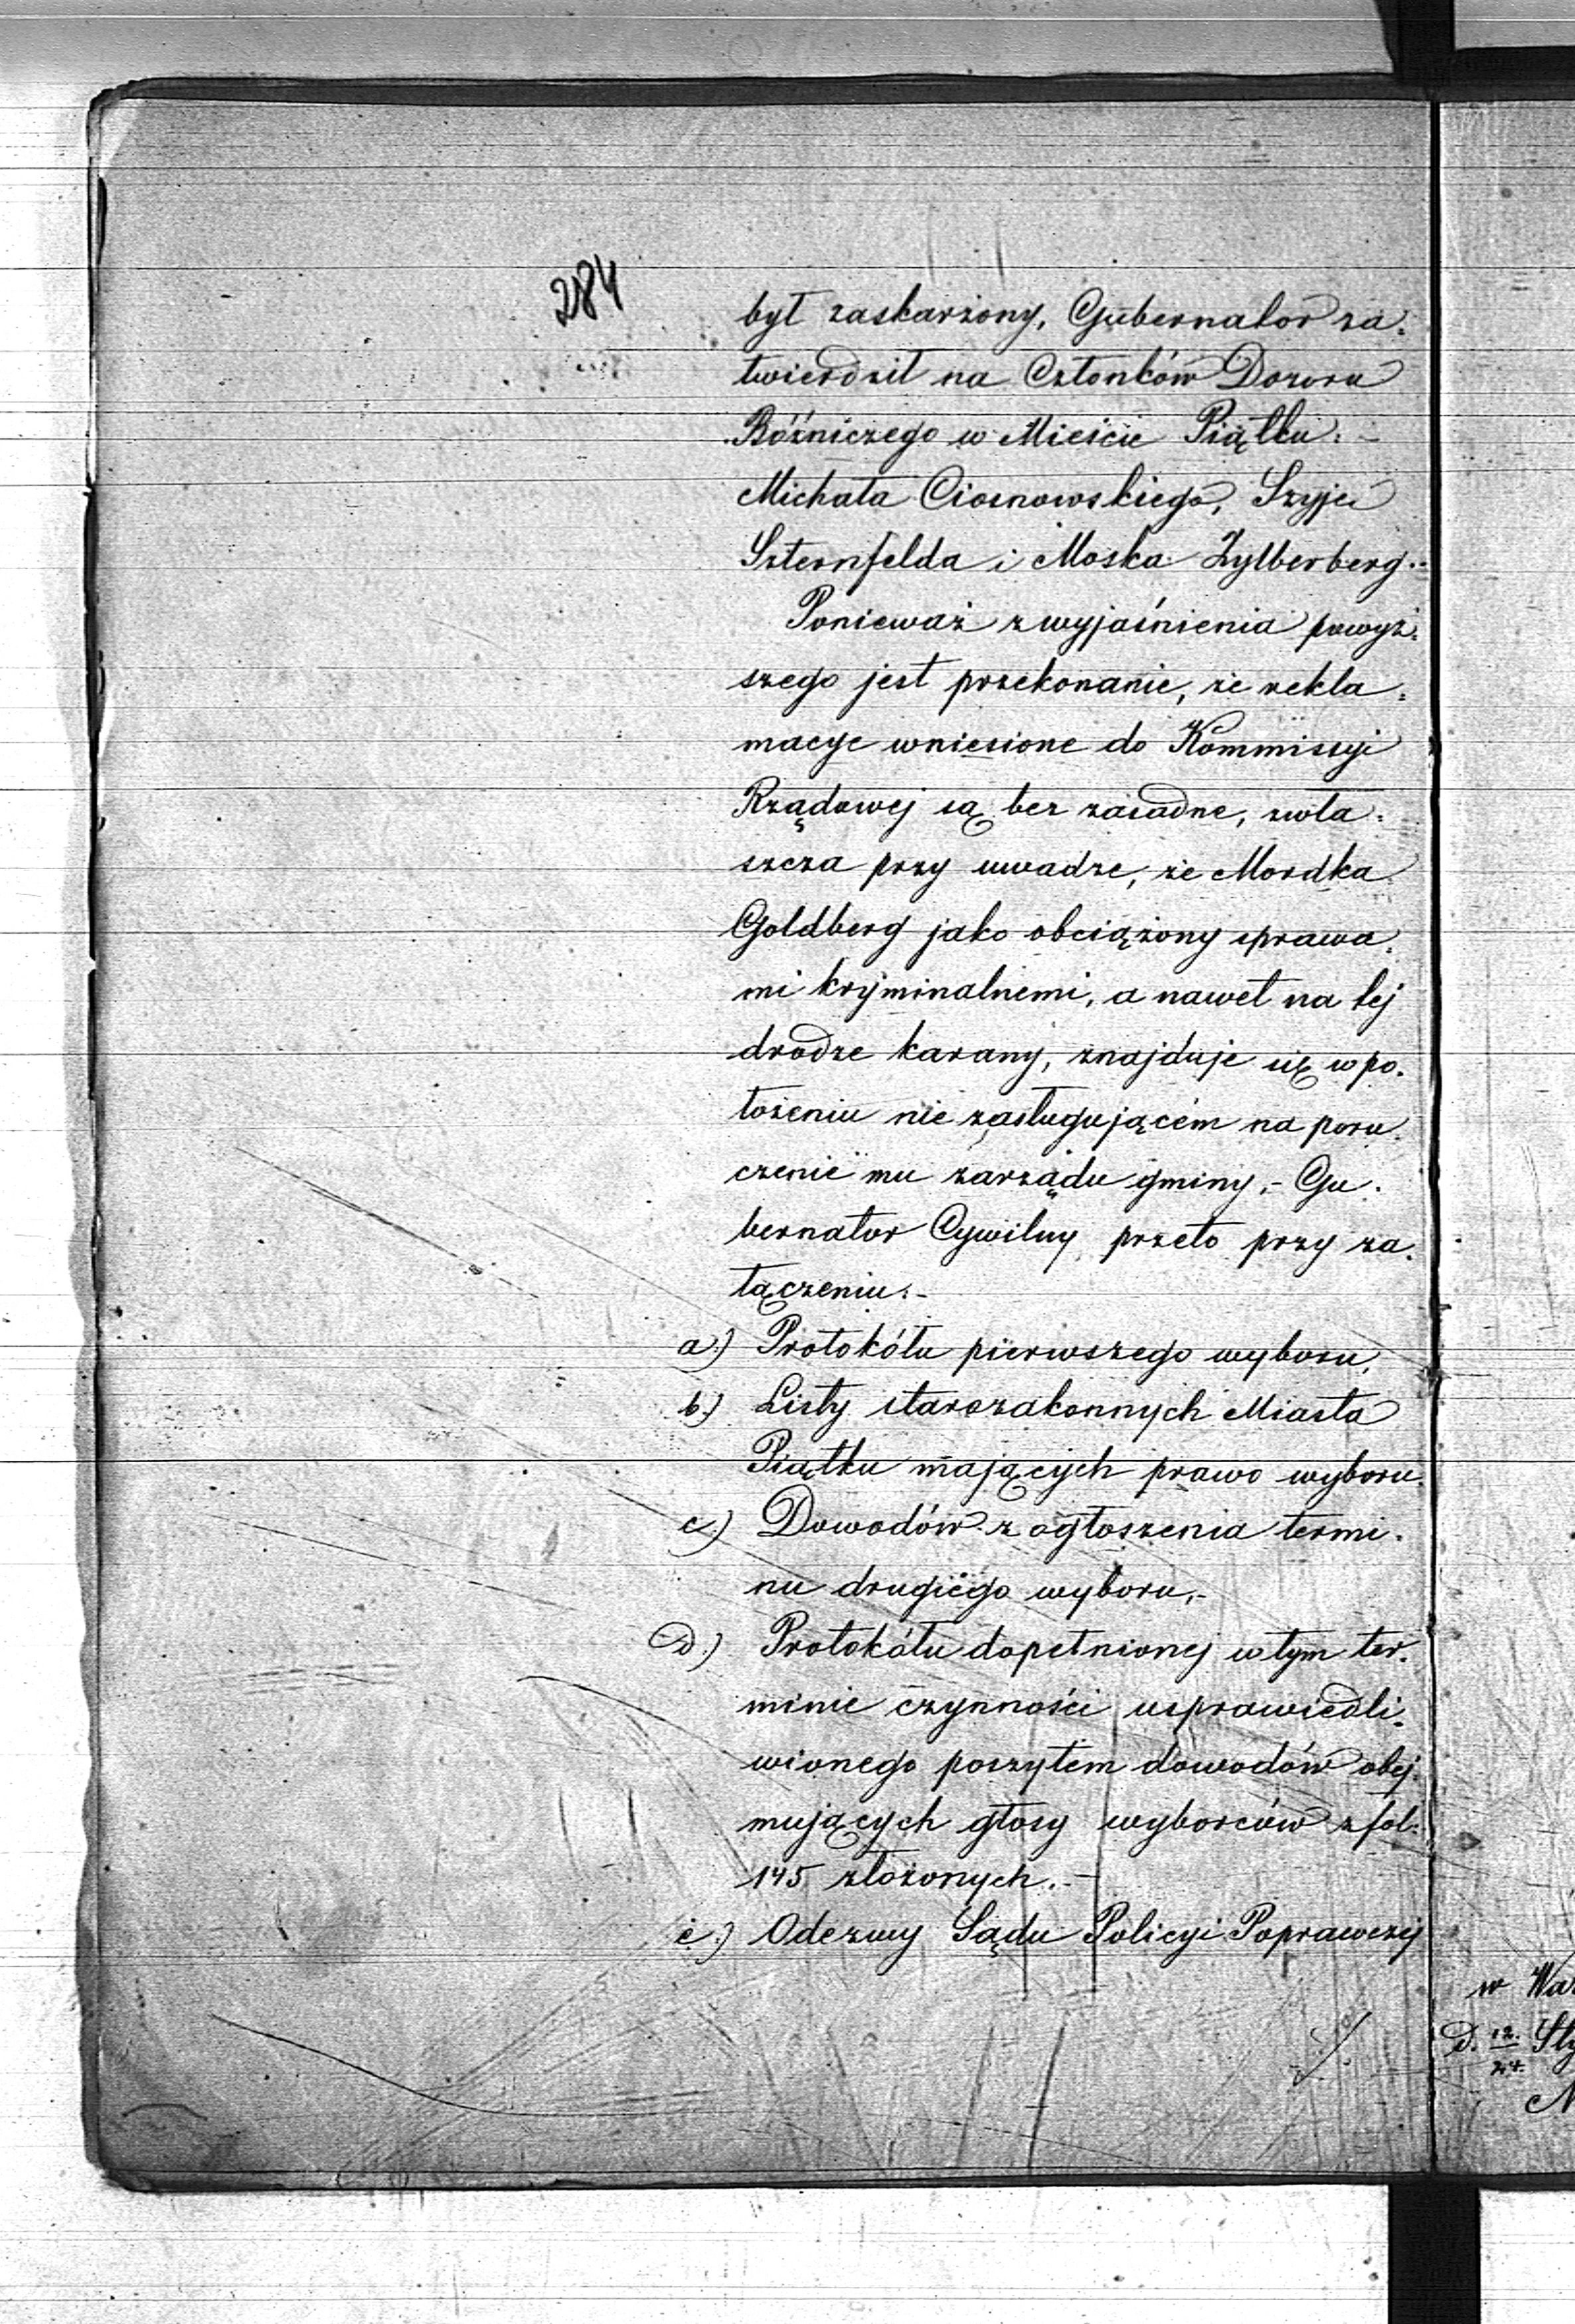 284
był zaskarżony, Gubernator za=
twierdził na Członków Dozoru
Bóżniczego w Mieście Piątku: -
Michała Ciosnowskiego, Szyje
Szternfelda i Moska Zylberberg.-
Ponieważ z wyjaśnienia powyż=
szego jest przekonanie, że rekla=
macye wniesione do Kommissyi
Rządowej są bez zasadne, zwła=
szcza przy uwadze, że Mordka
Goldberg jako obciążony sprawa=
mi kryminalnemi, a nawet na tej
drodze karany, znajduje się w po=
łożeniu nie zasługującém na poru=
czenie mu zarządu gminy, - Gu=
bernator Cywilny przeto przy za=
łączeniu: -
a.) Protokółu pierwszego wyboru,
b.) Listy starozakonnych Miasta
Piątku mających prawo wyboru.
c.) Dowodów z ogłoszenia termi=
nu drugiego wyboru, -
d.) Protokółu dopełnionej w tym ter=
minie czynności usprawiedli=
wionego poszytem dowodów obej=
mujących głosy wyborców z fol:
145 złożonych. -
e.) Odezwy Sądu Policyi Poprawczej
w
D. 12/24.